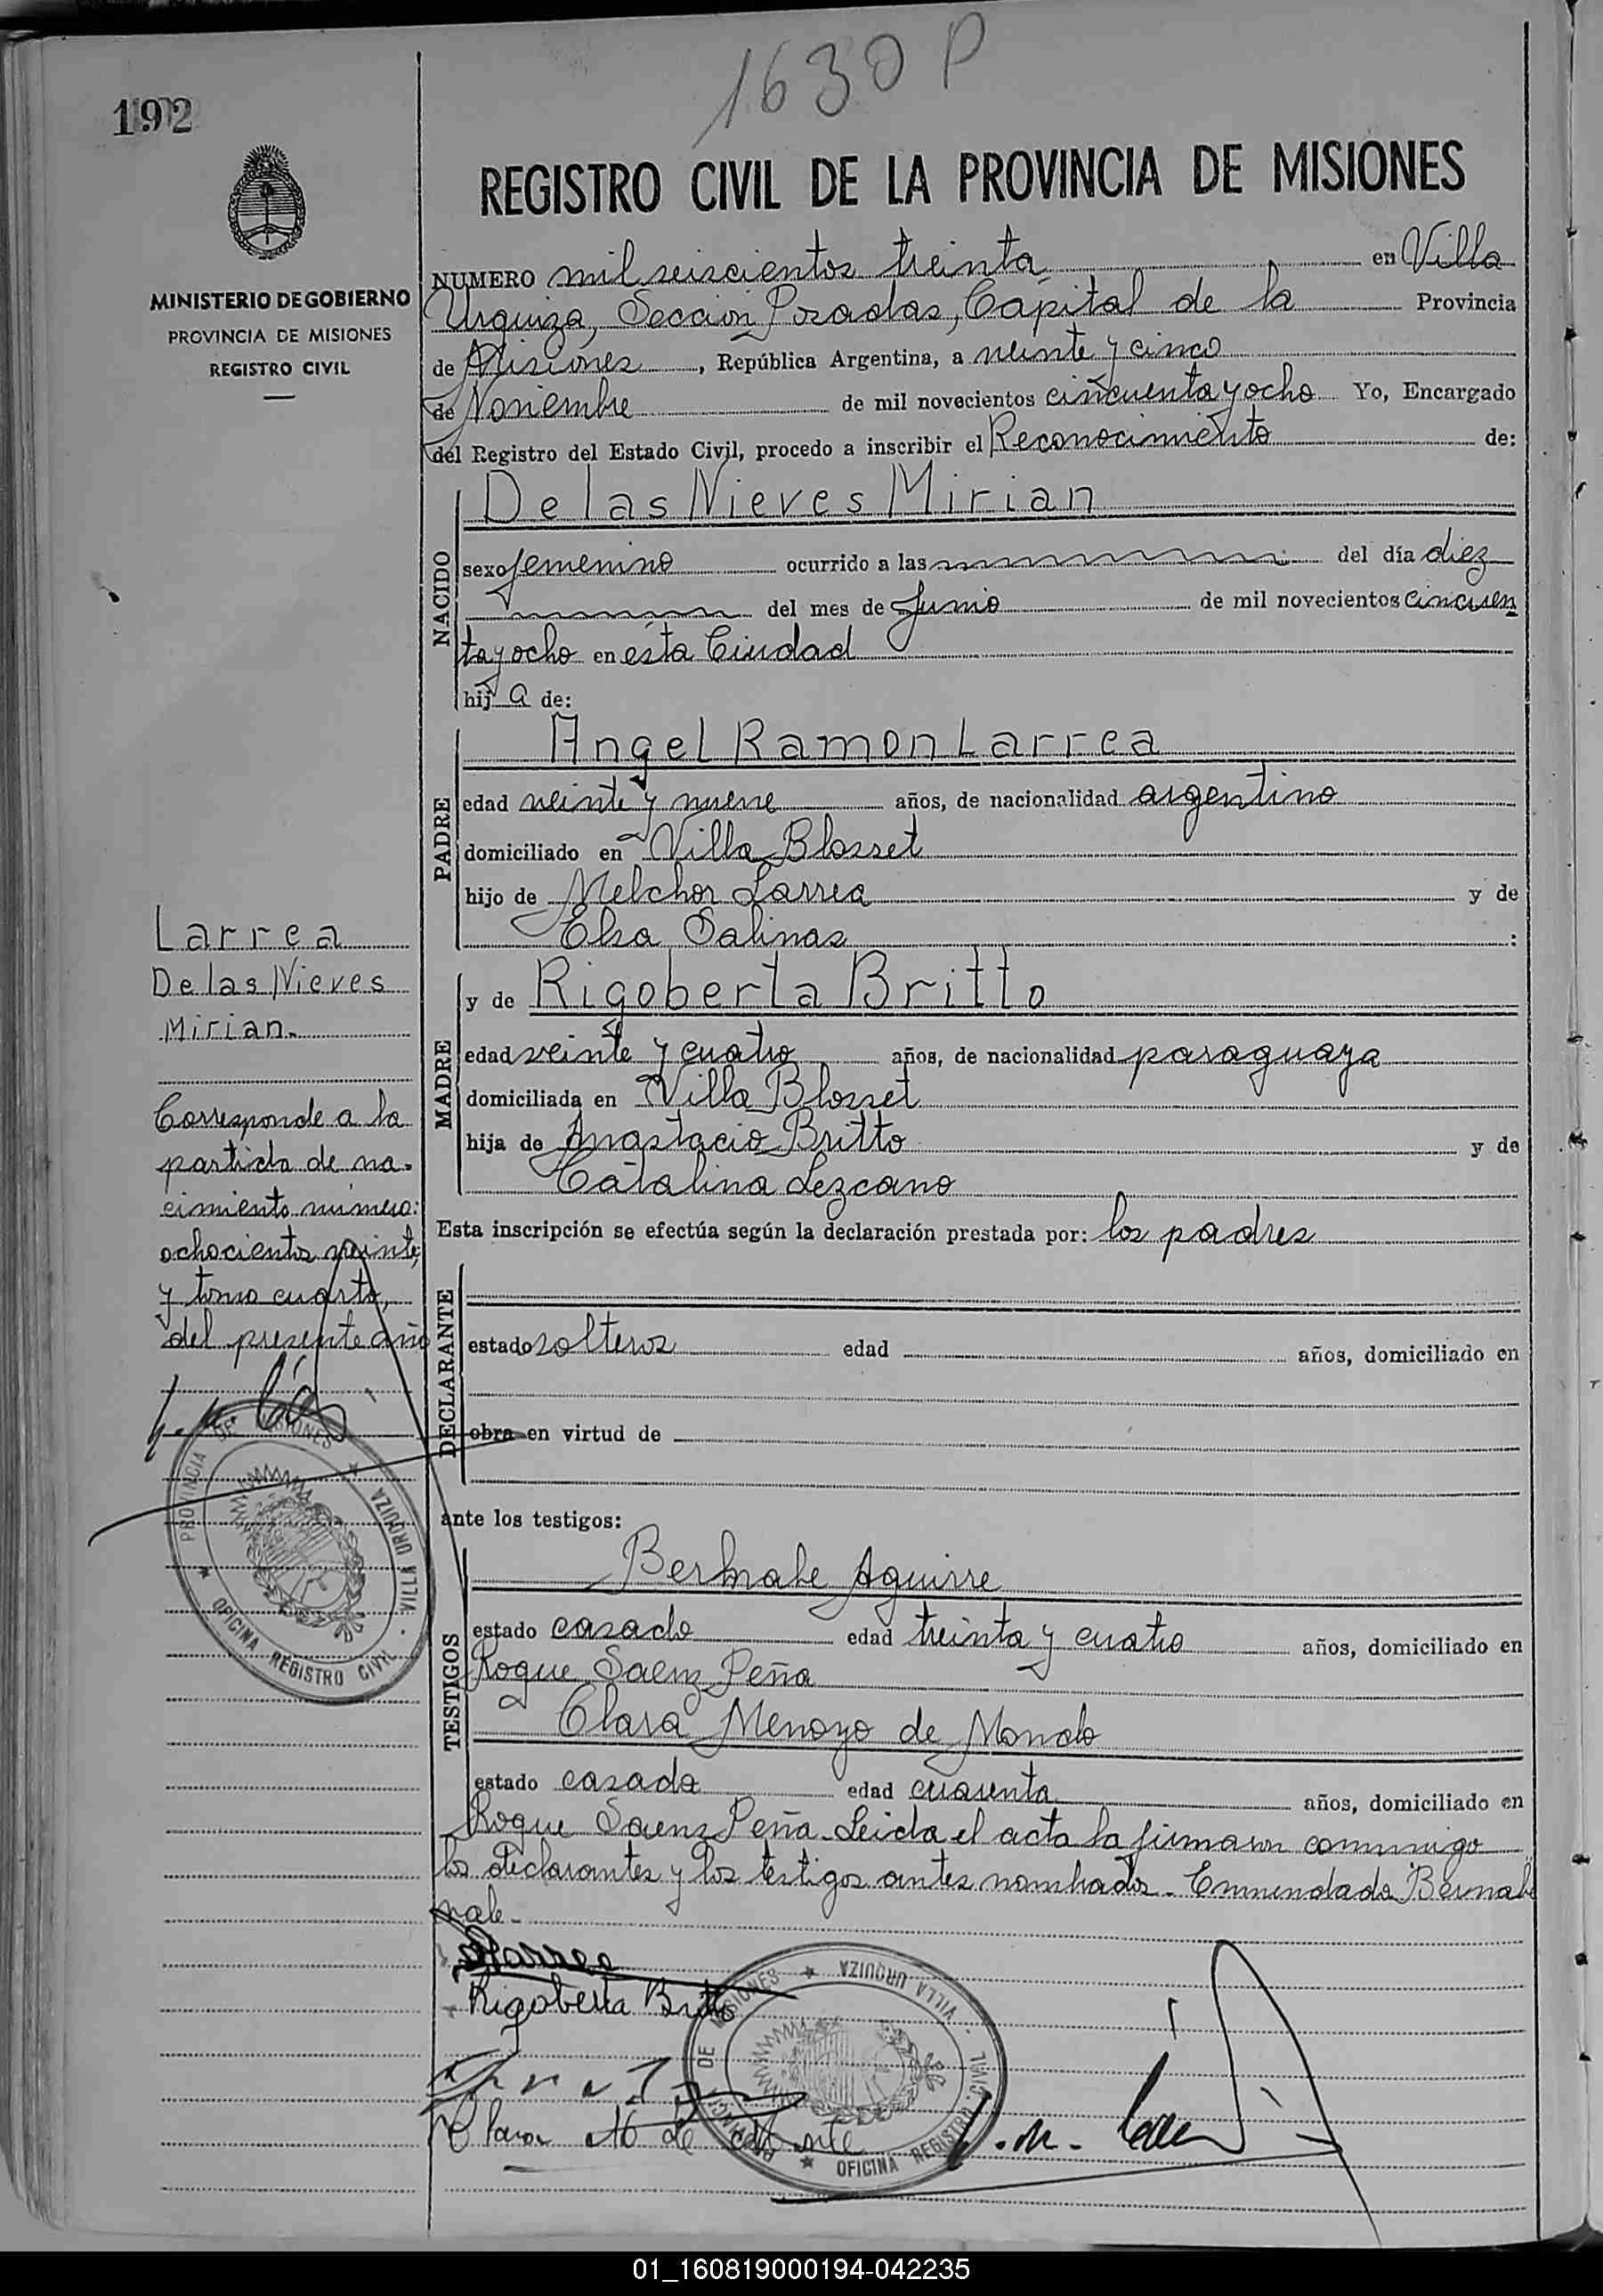 1630 P
192
REGISTRO CIVIL DE LA PROVINCIA DE MISIONES
MINISTERIO DE GOBIERNO
PROVINCIA DE MISIONES
REGISTRO CIVIL
NUMERO mil seiscientos treinta en Villa
Urquiza, Sección Posadas, Capital de la Provincia
de Misiones, República Argentina, a veinte y cinco
de Noviembre de mil novecientos cincuenta y ocho Yo, Encargado
del Registro del Estado Civil, procedo a inscribir el Reconocimiento de:
NACIDO
De las Nieves Mirian
sexo femenino ocurrido a las del día diez
del mes de Junio de mil novecientos cincuen
ta y ocho en esta Ciudad
hij a de:
PADRE
Angel Ramon Larrea
edad veinte y nueve años, de nacionalidad argentino
domiciliado en Villa Blosset
hijo de Melchor Larrea y de
Elsa Salinas :
MADRE
y de Rigoberta Britto
edad veinte y cuatro años, de nacionalidad paraguaya
domiciliada en Villa Blosset
hija de Anastacio Britto y de
Catalina Lezcano
Esta inscripción se efectúa según la declaración prestada por: los padres
DECLARANTE
estado solteros edad años, domiciliado en
obra en virtud de
ante los testigos:
TESTIGOS
Bernabe Aguirre
estado casado edad treinta y cuatro años, domiciliado en
Roque Saenz Peña
Clara Menoyo de Mondo
estado casada edad cuarenta años, domiciliado en
Roque Saenz Peña. Leida el acta la firmaron conmigo
los declarantes y los testigos antes nombrados. Enmendado Bernabe
vale.
Larrea
De las Nieves
Mirian.
Corresponde a la
partida de na-
cimiento número:
ochocientos veinte,
y tomo cuarto,
del presente año
PROVINCIA DE MISIONES
VILLA URQUIZA
OFICINA REGISTRO CIVIL
Larrea
Rigoberta Britto
Clara M de
PROVINCIA DE MISIONES
VILLA URQUIZA
OFICINA REGISTRO CIVIL
01_160819000194-042235